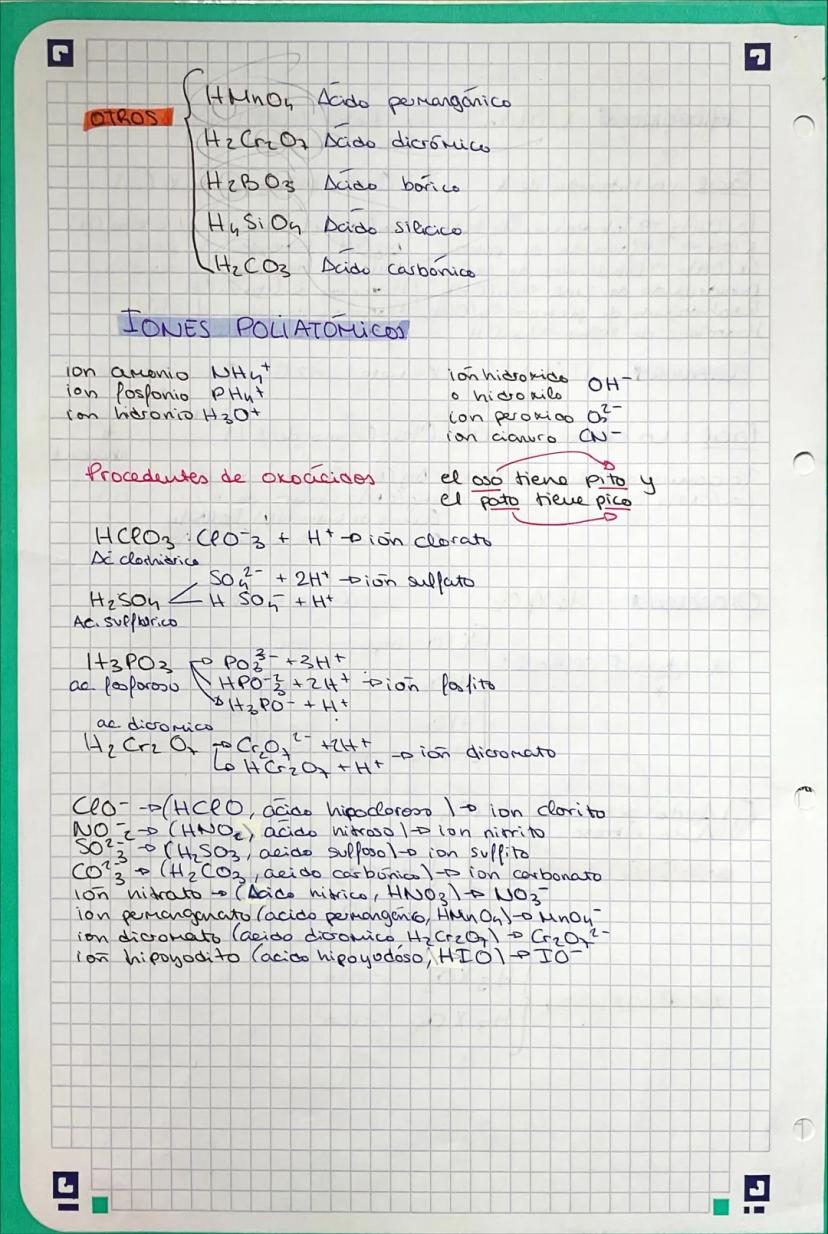 OTROS
HMnO₄ Ácido permangánico
H₂Cr₂O₇ Ácido dicrómico
H₂BO₃ Ácido bórico
H₄SiO₄ Ácido silícico
H₂CO₃ Ácido carbónico
IONES POLIATÓMICOS
ion amonio NH₄⁺
ion fosfonio PH₄⁺
ion hidronio H₃O⁺
ión hidroxido
o hidroxilo OH⁻
ion peroxido O₂²⁻
ion cianuro CN⁻
Procedentes de oxoácidos
el oso tiene pito y
el pato tiene pico
HClO₃ : ClO⁻₃ + H⁺ → ión clorato
Ác clorhídrico
SO₄²⁻ + 2H⁺ → ión sulfato
H₂SO₄ H SO₄⁻ + H⁺
Ac. sulfúrico
H₃PO₃ → PO₃³⁻ + 3H⁺
ac fosforoso HPO⁻²₃ + 2H⁺ → ión fosfito
H₃PO⁻ + H⁺
ac dicromico
H₂Cr₂O₇ → Cr₂O₇²⁻ + 2H⁺
→ HCr₂O₇ + H⁺ → ión dicromato
ClO⁻ → (HClO, ácido hipocloroso) → ion clorito
NO⁻₂ → (HNO₂, ácido nitroso) → ion nitrito
SO²⁻₃ → (H₂SO₃, acido sulfoso) → ion sulfito
CO²⁻₃ → (H₂CO₃, acido carbónico) → ion carbonato
ión nitrato → (Ácido nítrico, HNO₃) → NO₃⁻
ion permanganato (acido permangánio, HMnO₄) → MnO₄⁻
ion dicromato (acido dicromico, H₂Cr₂O₇) → Cr₂O₇²⁻
ion hipoyodito (acido hipoyodóso, HIO) → IO⁻